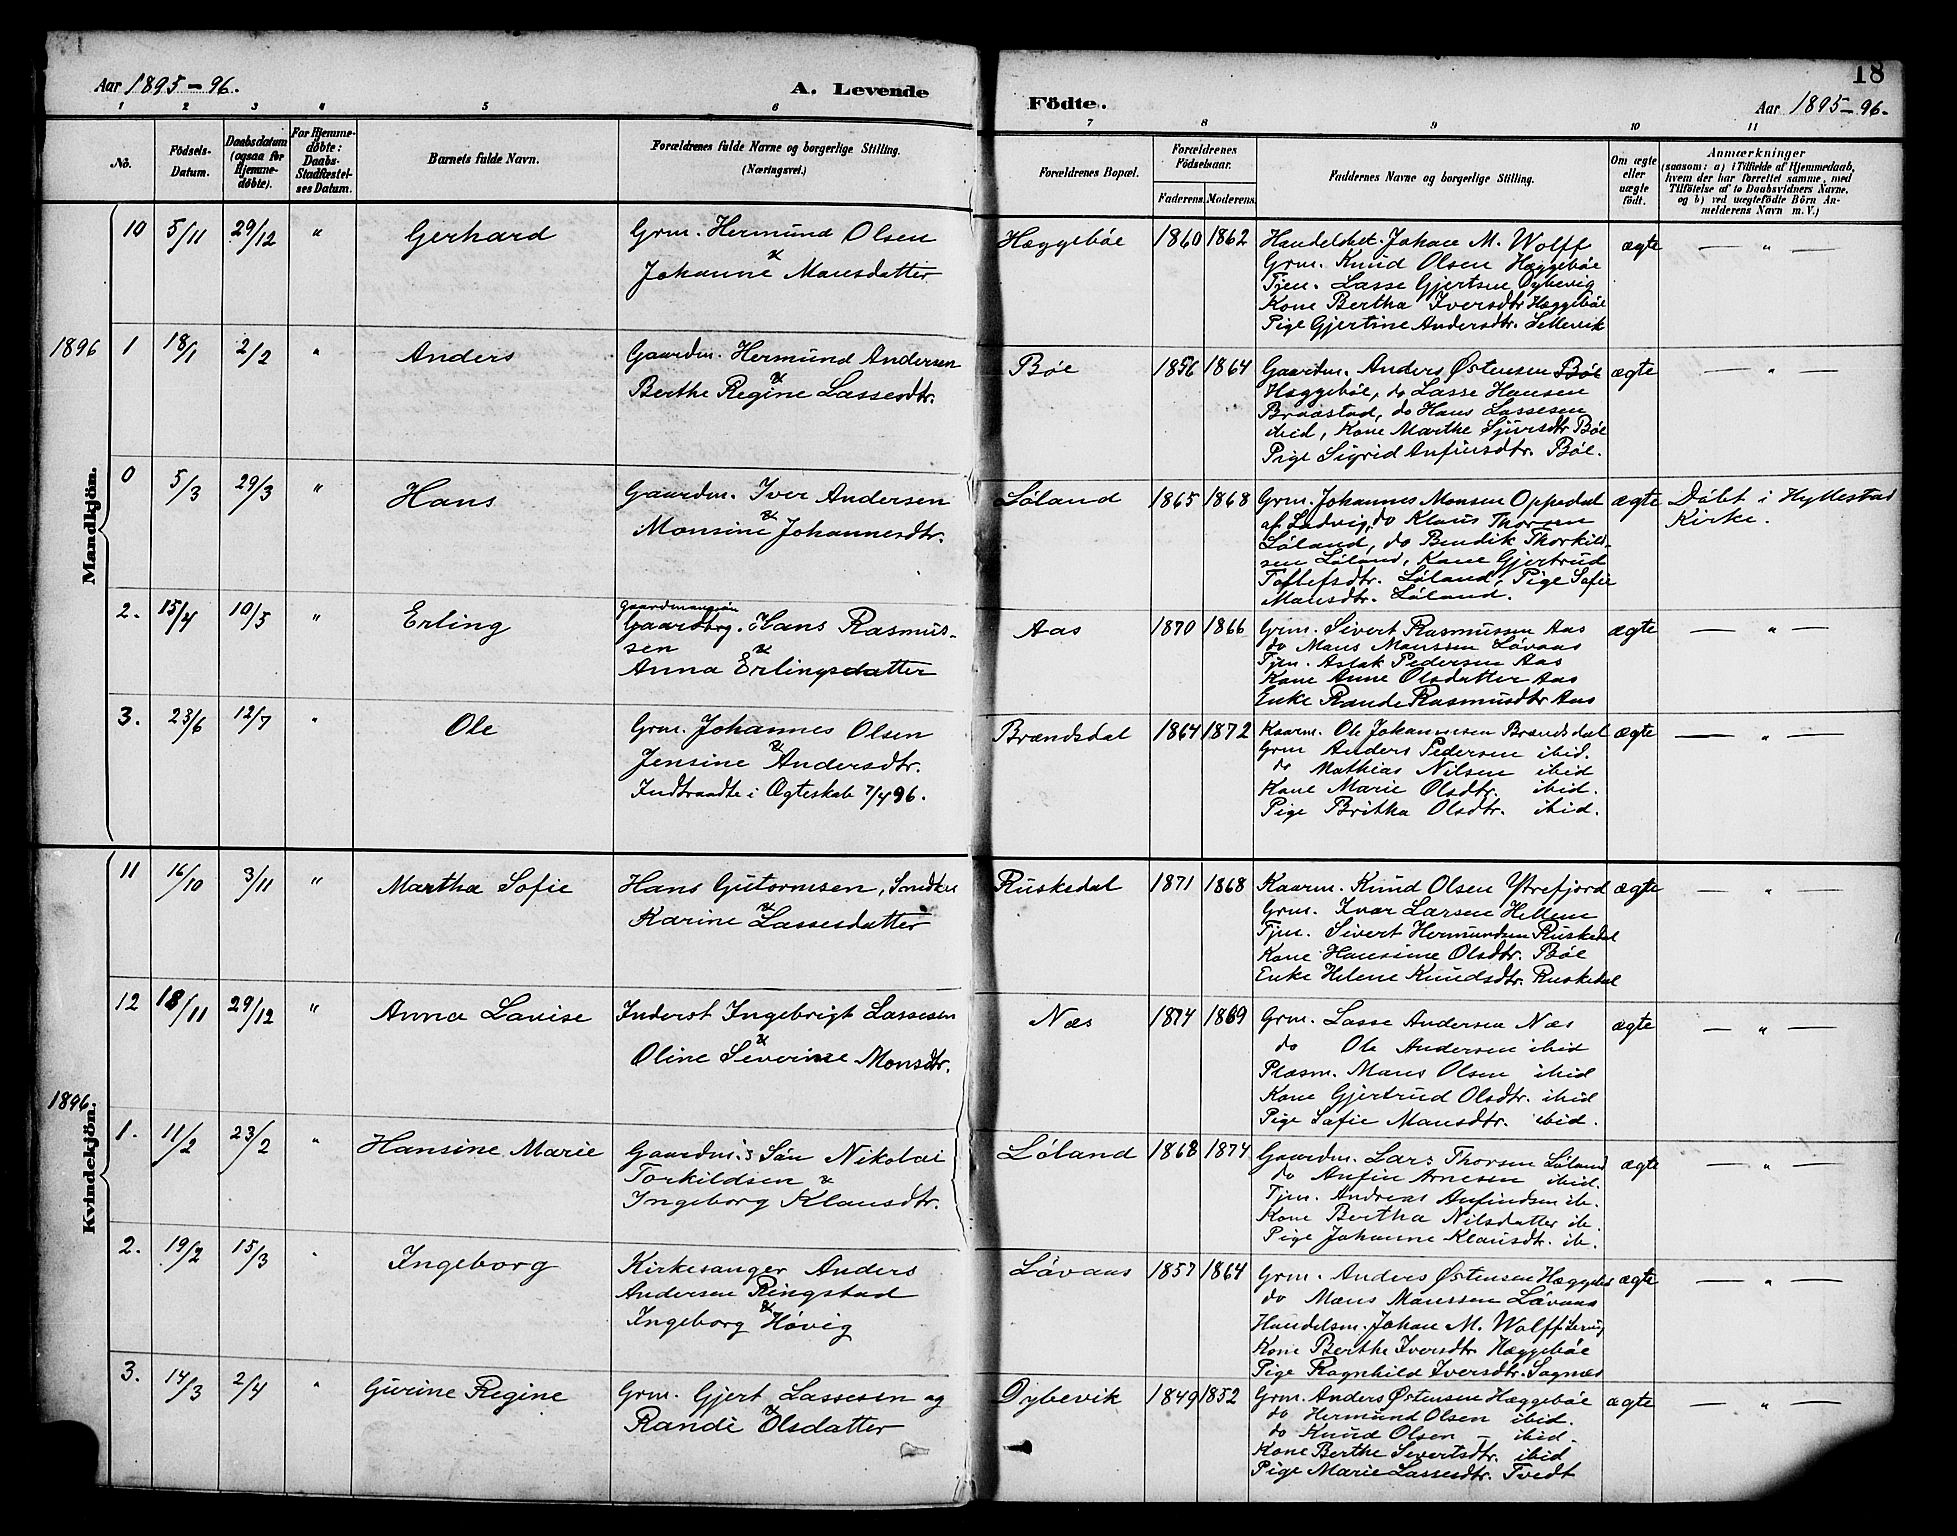 Aar 1895-96.
A. Levende
Födte.
18
Aar 1895-96.
1 2 3 4 5 6 7 8 9 10 11
No.
Födsels-Datum.
Daabsdatum (ogsaa for Hjemme-döbte).
For Hjemme-døbte: Daabs-Stadfæstel-ses Datum.
Barnets fulde Navn.
Forældrenes fulde Navne og borgerlige Stilling. (Næringsvei.)
Forældrenes Bopæl.
Forældrenes Födselsaar.
Faderens. Moderens.
Faddernes Navne og borgerlige Stilling.
Om ægte eller uægte født.
Anmærkninger
(saasom: a) i Tilfælde af Hjemmedaab, hvem der har forrettet samme, med Tilföielse af to Daabsvidners Navne, og b) ved uægtefödte Börn Anmelderens Navn m. V.)
Mandkjön.
10 5/11 29/12 " Gerhard
Grm. Hermund Olsen
&
Johanne Mansdatter
Hæggebøe 1860 1862
Handelsbet. Johan M. Wolff
Grm. Knud Olsen Hæggebøe
Tjen. Lasse Gjertsen Dybevig
Kone Bertha Iversdtr Hæggebøe
Pige Gjertine Andersdtr. Sellevik
ægte — " —
1896
1 18/1 2/2 " Anders
Gaardm. Hermund Andersen
&
Berthe Regine Lassesdtr.
Bøe 1856 1864
Gaardm. Anders Østensen Bøe
Hæggebøe, do Lasse Hansen
Braastad, do Hans Lassesen
ibid, Kone Marthe Sjursdtr Bøe
Pige Sigrid Anfinsdtr. Bøe.
ægte — " —
0 5/3 29/3 " Hans
Gaardm. Iver Andersen
&
Monsine Johannesdtr.
Løland 1865 1868
Grm. Johannes Monsen Oppedal
af Ladvig, do Klaus Thorsen
Løland, do Bendik Thorkild-
sen Løland, Kone Gjertrud
Tollefsdtr. Løland, Pige Sofie
Mansdtr. Løland.
ægte
Døbt i Hyllestad
Kirke.
2. 15/4 10/5 " Erling
gaardmandssøn
Gaardbrg. Hans Rasmus-
sen &
Anna Erlingsdatter
Aas 1870 1866
Grm. Sivert Rasmussen Aas
do Mans Manssen Løvaas
Tjen. Aslak Pedersen Aas
Kone Anne Olsdatter Aas
Enke Rande Rasmusdtr Aas
ægte — " —
3. 23/6 12/7 " Ole
Grm. Johannes Olsen
&
Jensine Andersdtr.
Indtraadte i Ægteskab 7/4 96.
Brændsdal 1864 1872
Kaarm. Ole Johannesen Brændsdal
Grm Anders Pedersen ibid.
do Mathias Nilsen ibid
Kone Marie Olsdtr. ibid.
Pige Britha Olsdtr. ibid.
ægte — " —
Kvindekjön.
11 16/10 3/11 " Martha Sofie
Hans Gutormsen, Snedker
&
Karine Lassesdatter
Ruskedal 1871 1868
Kaarm. Knud Olsen Ytrefjord
Grm. Ivar Larsen Hellem
Tjen. Sivert Hermundsen Ruskedal
Kone Hansine Olsdtr. Bøe
Enke Helene Knudsdtr. Ruskedal
ægte — " —
12 18/11 29/12 " Anna Lovise
Inderst Ingebrigt Lassesen
&
Oline Severine Monsdtr.
Næs 1874 1869
Grm. Lasse Andersen Næs
do Ole Andersen ibid
Plasm. Mans Olsen ibid
Kone Gjertrud Olsdtr. ibid
Pige Sofie Mansdtr. ibid.
ægte — " —
1896.
1. 11/2 23/2 " Hansine Marie
Gaardm.s Søn Nikolai
Torkildsen &
Ingeborg Klausdtr.
Løland 1868 1874
Gaardm. Lars Thorsen Løland
do Anfin Arnesen ibid.
Tjen. Andreas Anfindsen ib.
Kone Bertha Nilsdatter ib.
Pige Johanne Klausdtr. ib.
ægte — " —
2. 19/2 15/3 " Ingeborg
Kirkesanger Anders
Andersen Ringstad
&
Ingeborg Høvig
Løvaas 1857 1864
Grm. Anders Østensen Hæggebø
do Mans Manssen Løvaas
Handelsm. Johan M. Wolff
Kone Berthe Iversdtr Hæggebøe
Pige Ragnhild Iversdtr. Sognnes
ægte — " —
3. 14/3 2/4 " Gurine Regine
Grm. Gjert Lassesen og
&
Randi Olsdatter
Dybevik 1849 1852
Grm. Anders Østensen Hæggebøe
do Hermund Olsen ibid.
do Knud Olsen - ibid.
Kone Berthe Sivertsdtr. ibid
Pige Marie Lassesdtr. Tvedt
ægte — " —